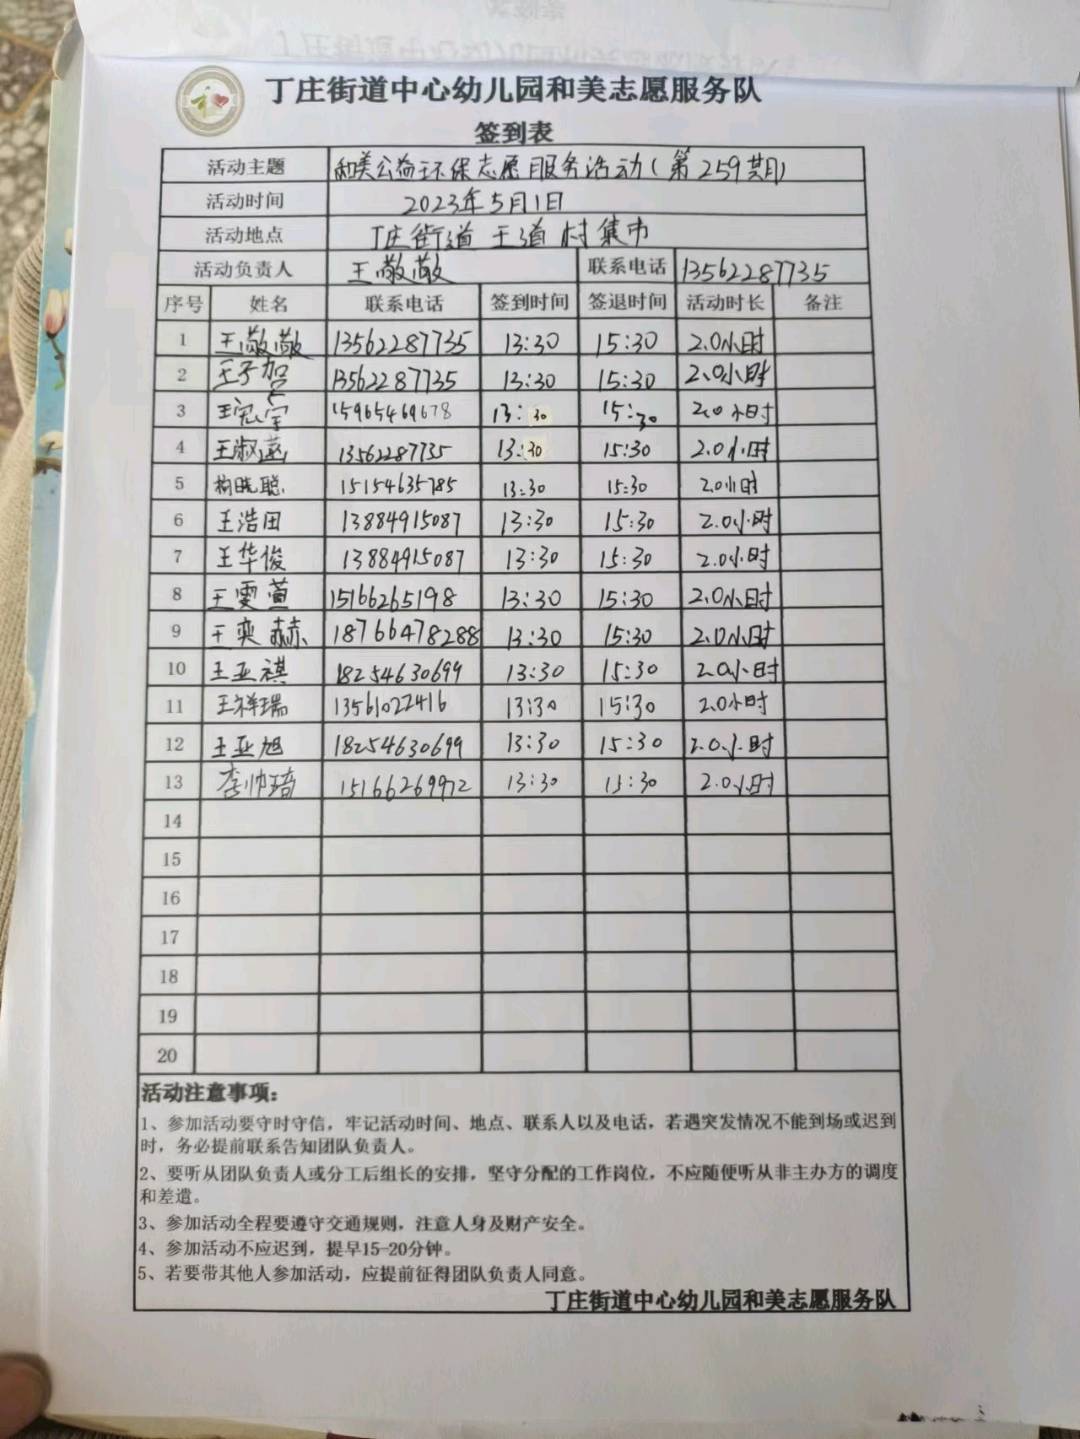 丁庄街道中心幼儿园和美志愿服务队
签到表
活动主题 和美公益环保志愿服务活动(第259期)
活动时间 2023年5月1日
活动地点 丁庄街道王道村集市
活动负责人 王敬敬 联系电话 13562287735
序号 姓名 联系电话 签到时间 签退时间 活动时长 备注
1 王敬敬 13562287735 13:30 15:30 2.0小时
2 13562287735 13:30 15:30 2.0小时
3 15965469678 13:30 15:30 2.0小时
4 王淑菡 13562287735 13:30 15:30 2.0小时
5 晓聪 15154635785 13:30 15:30 2.0小时
6 王浩田 13884915087 13:30 15:30 2.0小时
7 王华俊 13884915087 13:30 15:30 2.0小时
8 王雯萱 15166265198 13:30 15:30 2.0小时
9 王奕赫 18766478288 13:30 15:30 2.0小时
10 王亚祺 18254630699 13:30 15:30 2.0小时
11 王祥瑞 13561022416 13:30 15:30 2.0小时
12 王亚旭 18254630699 13:30 15:30 2.0小时
13 李帅琦 15166269972 13:30 15:30 2.0小时
14
15
16
17
18
19
20
活动注意事项:
1、参加活动要守时守信，牢记活动时间、地点、联系人以及电话，若遇突发情况不能到场或迟到
时，务必提前联系告知团队负责人。
2、要听从团队负责人或分工后组长的安排，坚守分配的工作岗位，不应随便听从非主办方的调度
和差遣。
3、参加活动全程要遵守交通规则，注意人身及财产安全。
4、参加活动不应迟到，提早15-20分钟。
5、若要带其他人参加活动，应提前征得团队负责人同意。
丁庄街道中心幼儿园和美志愿服务队